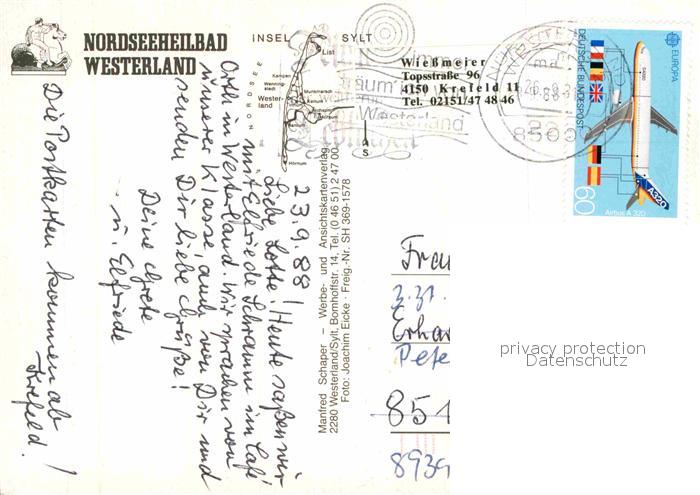 NORDSEEHEILBAD
WESTERLAND
INSEL SYLT
NORDSEE
List
Kampen
Wenning-
stedt
Wester-
land
Munkmarsch
Keitum
Hörnum
Westerland
Wießmeier
Topsstraße 96
4150 Krefeld 11
Tel. 02151/47 48 46
EUROPA
DEUTSCHE BUNDESPOST
60
A320
Airbus A 320
23.9.88
Liebe Lotte! Heute saßen wir
mit Elfriede Schramm im Café
Orth in Westerland. Wir sprachen von
unserer Klasse, auch von Dir und
senden Dir liebe Grüße!
Deine Grete
u. Elfriede
Die Postkarten kommen ab
Krefeld!
Manfred Schaper – Werbe- und Ansichtskartenverlag
2280 Westerland/Sylt, Bomhoffstr. 14, Tel. (0 46 51) 2 47 00
Foto: Joachim Eicke · Freig.-Nr. SH 369-1578
Frau
z.Zt.
Erhar
Pete
851
8939
privacy protection
Datenschutz